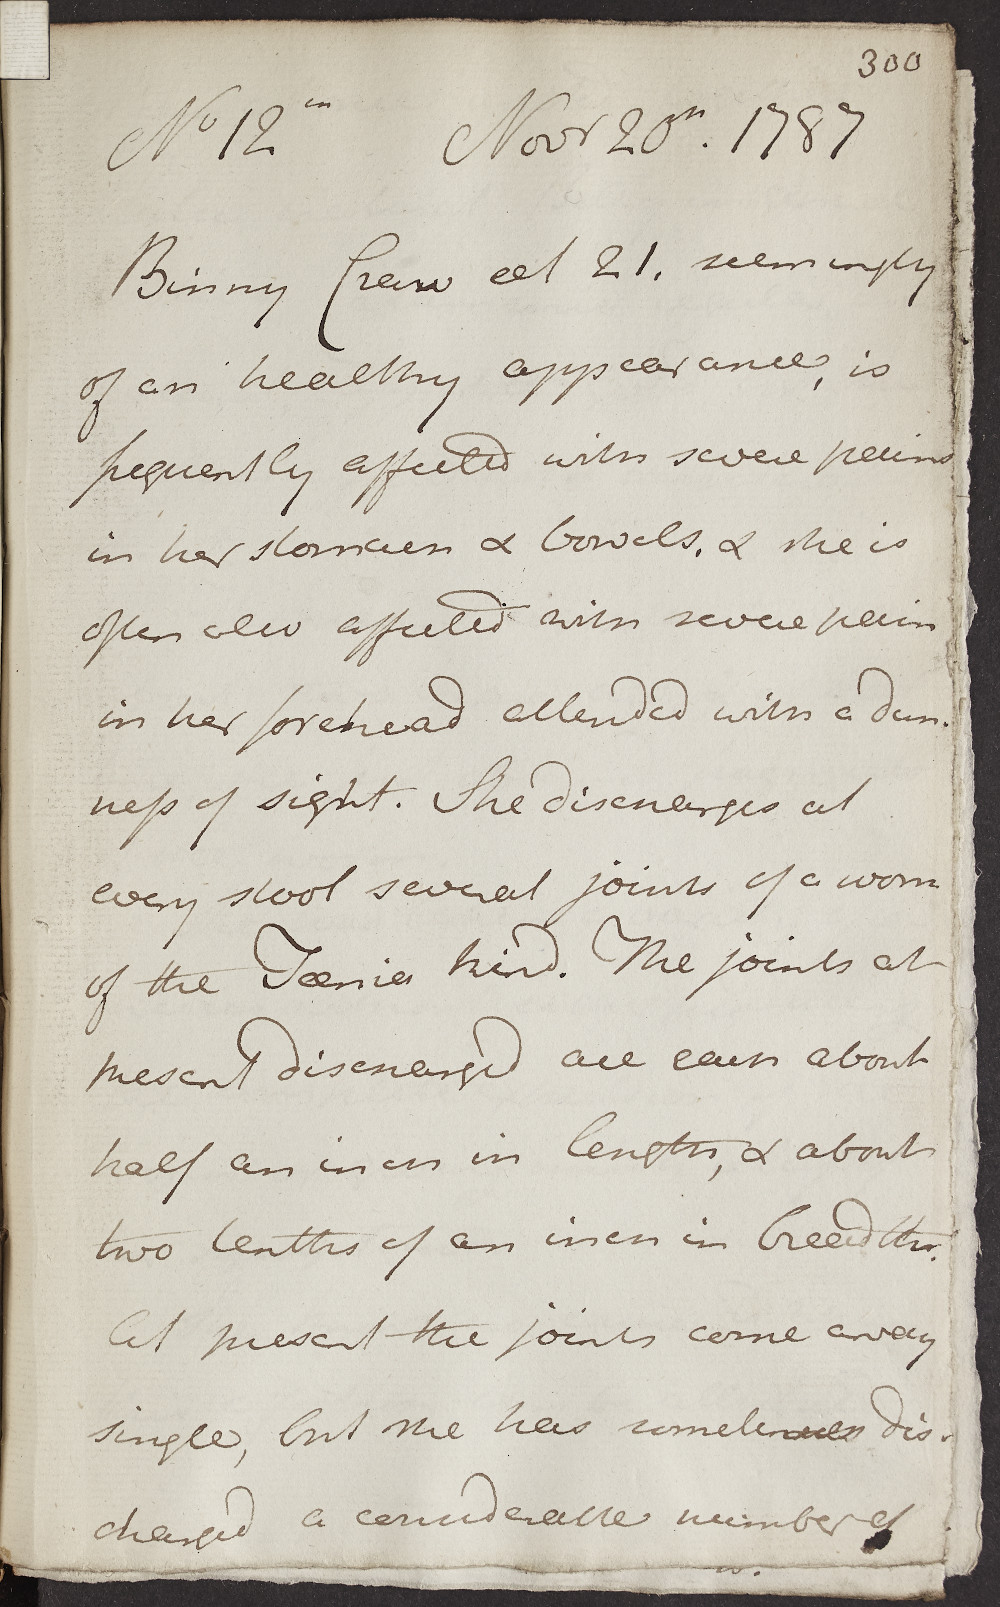 300
No 12th Novr 20th. 1787
Binny Craw æt 21. seemingly
of an healthy appearance, is
frequently affected with severe pains
in her stomach & bowels, & she is
often also affected with severe pain
in her forehead attended with a dim-
ness of sight. She discharges at
every stool several joints of a worm
of the Tænia kind. The joints at
present discharged are each about
half an inch in length, & about
two tenths of an inch in breedth.
At present the joints come away
single, but she has sometimes dis-
charged a considerable number of